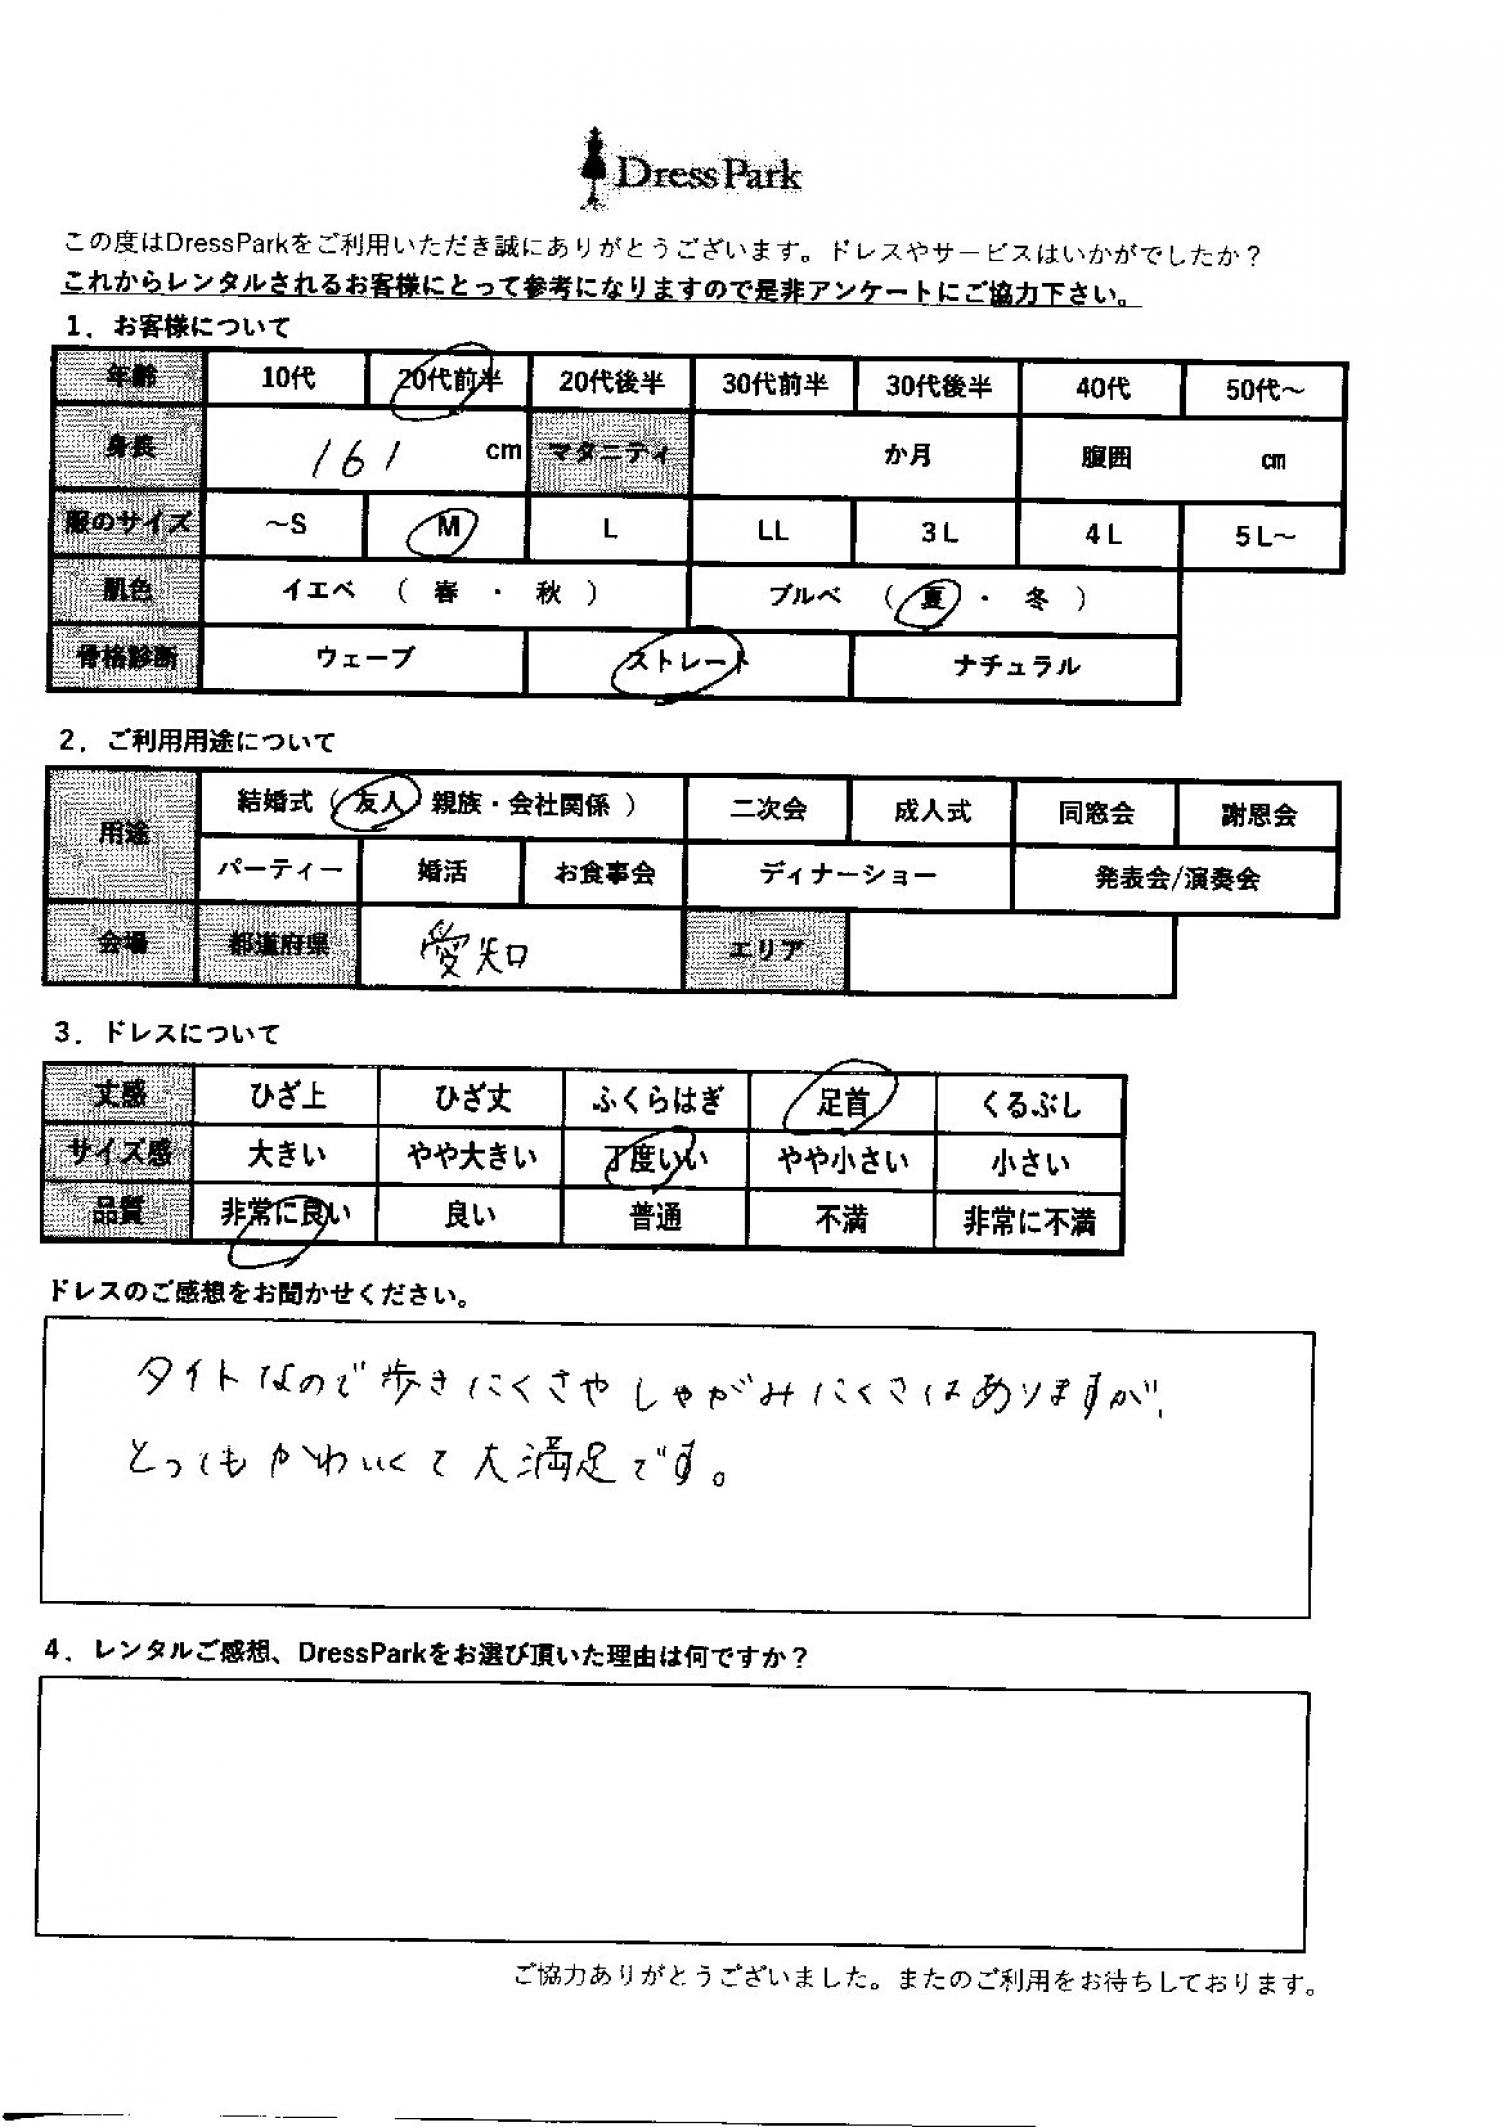 DressPark
この度はDressParkをご利用いただき誠にありがとうございます。ドレスやサービスはいかがでしたか？
これからレンタルされるお客様にとって参考になりますので是非アンケートにご協力下さい。
1．お客様について
年齢 10代 20代前半 20代後半 30代前半 30代後半 40代 50代～
身長 161 cm マタニティ か月 腹囲 cm
服のサイズ ～S M L LL 3L 4L 5L～
肌色 イエベ （ 春 ・ 秋 ） ブルベ （ 夏 ・ 冬 ）
骨格診断 ウェーブ ストレート ナチュラル
2．ご利用用途について
用途 結婚式（友人・親族・会社関係） 二次会 成人式 同窓会 謝恩会
パーティー 婚活 お食事会 ディナーショー 発表会/演奏会
会場 都道府県 愛知 エリア
3．ドレスについて
丈感 ひざ上 ひざ丈 ふくらはぎ 足首 くるぶし
サイズ感 大きい やや大きい 丁度いい やや小さい 小さい
品質 非常に良い 良い 普通 不満 非常に不満
ドレスのご感想をお聞かせください。
タイトなので歩きにくさやしゃがみにくさはありますが、
とってもかわいくて大満足です。
4．レンタルご感想、DressParkをお選び頂いた理由は何ですか？
ご協力ありがとうございました。またのご利用をお待ちしております。